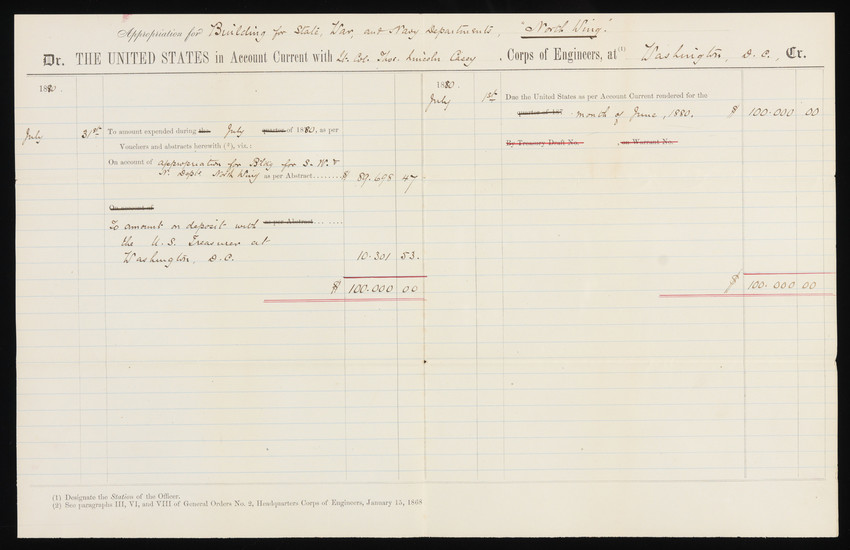 Appropriation for Building for State, War, and Navy Departments, "North Wing".
Dr. THE UNITED STATES in Account Current with Lt. Col. Thos. Lincoln Casey, Corps of Engineers, at (1) Washington, D. C., Cr.
1880.
July 31st To amount expended during the July quarter of 1880, as per
Vouchers and abstracts herewith (2), viz:
On account of appropriation for Bldg for S. W. &
N. Depts North Wing as per Abstract........$ 89.698 47
On account of
To amount on deposit with as per Abstract... ....
the U. S. Treasurer at
Washington, D. C. 10.301 53.
$ 100.000 00
1880.
July 1st Due the United States as per Account Current rendered for the
quarter of 187 month of June, 1880. $ 100.000 00
By Treasury Draft No. , on Warrant No.
$ 100.000 00
(1) Designate the Station of the Officer.
(2) See paragraphs III, VI, and VIII of General Orders No. 2, Headquarters Corps of Engineers, January 15, 1868